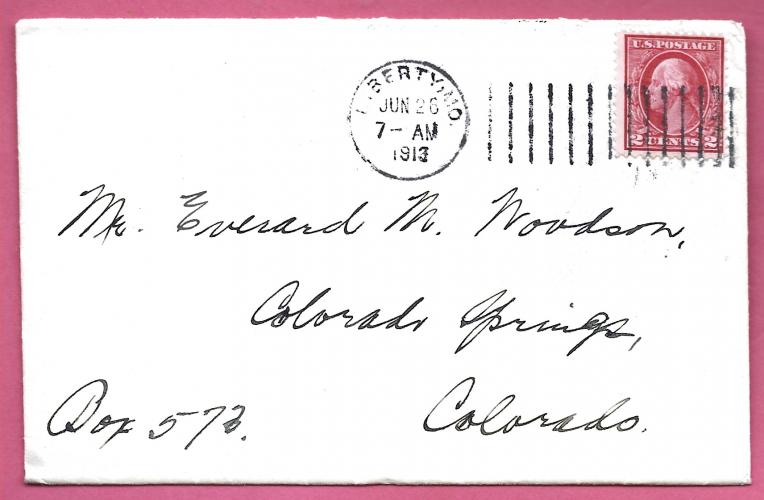 LIBERTY, MO.
JUN 26
7- AM
1913
U.S. POSTAGE
2 CENTS 2
Mr. Everard M. Woodson,
Colorado Springs,
Box 573.
Colorado.